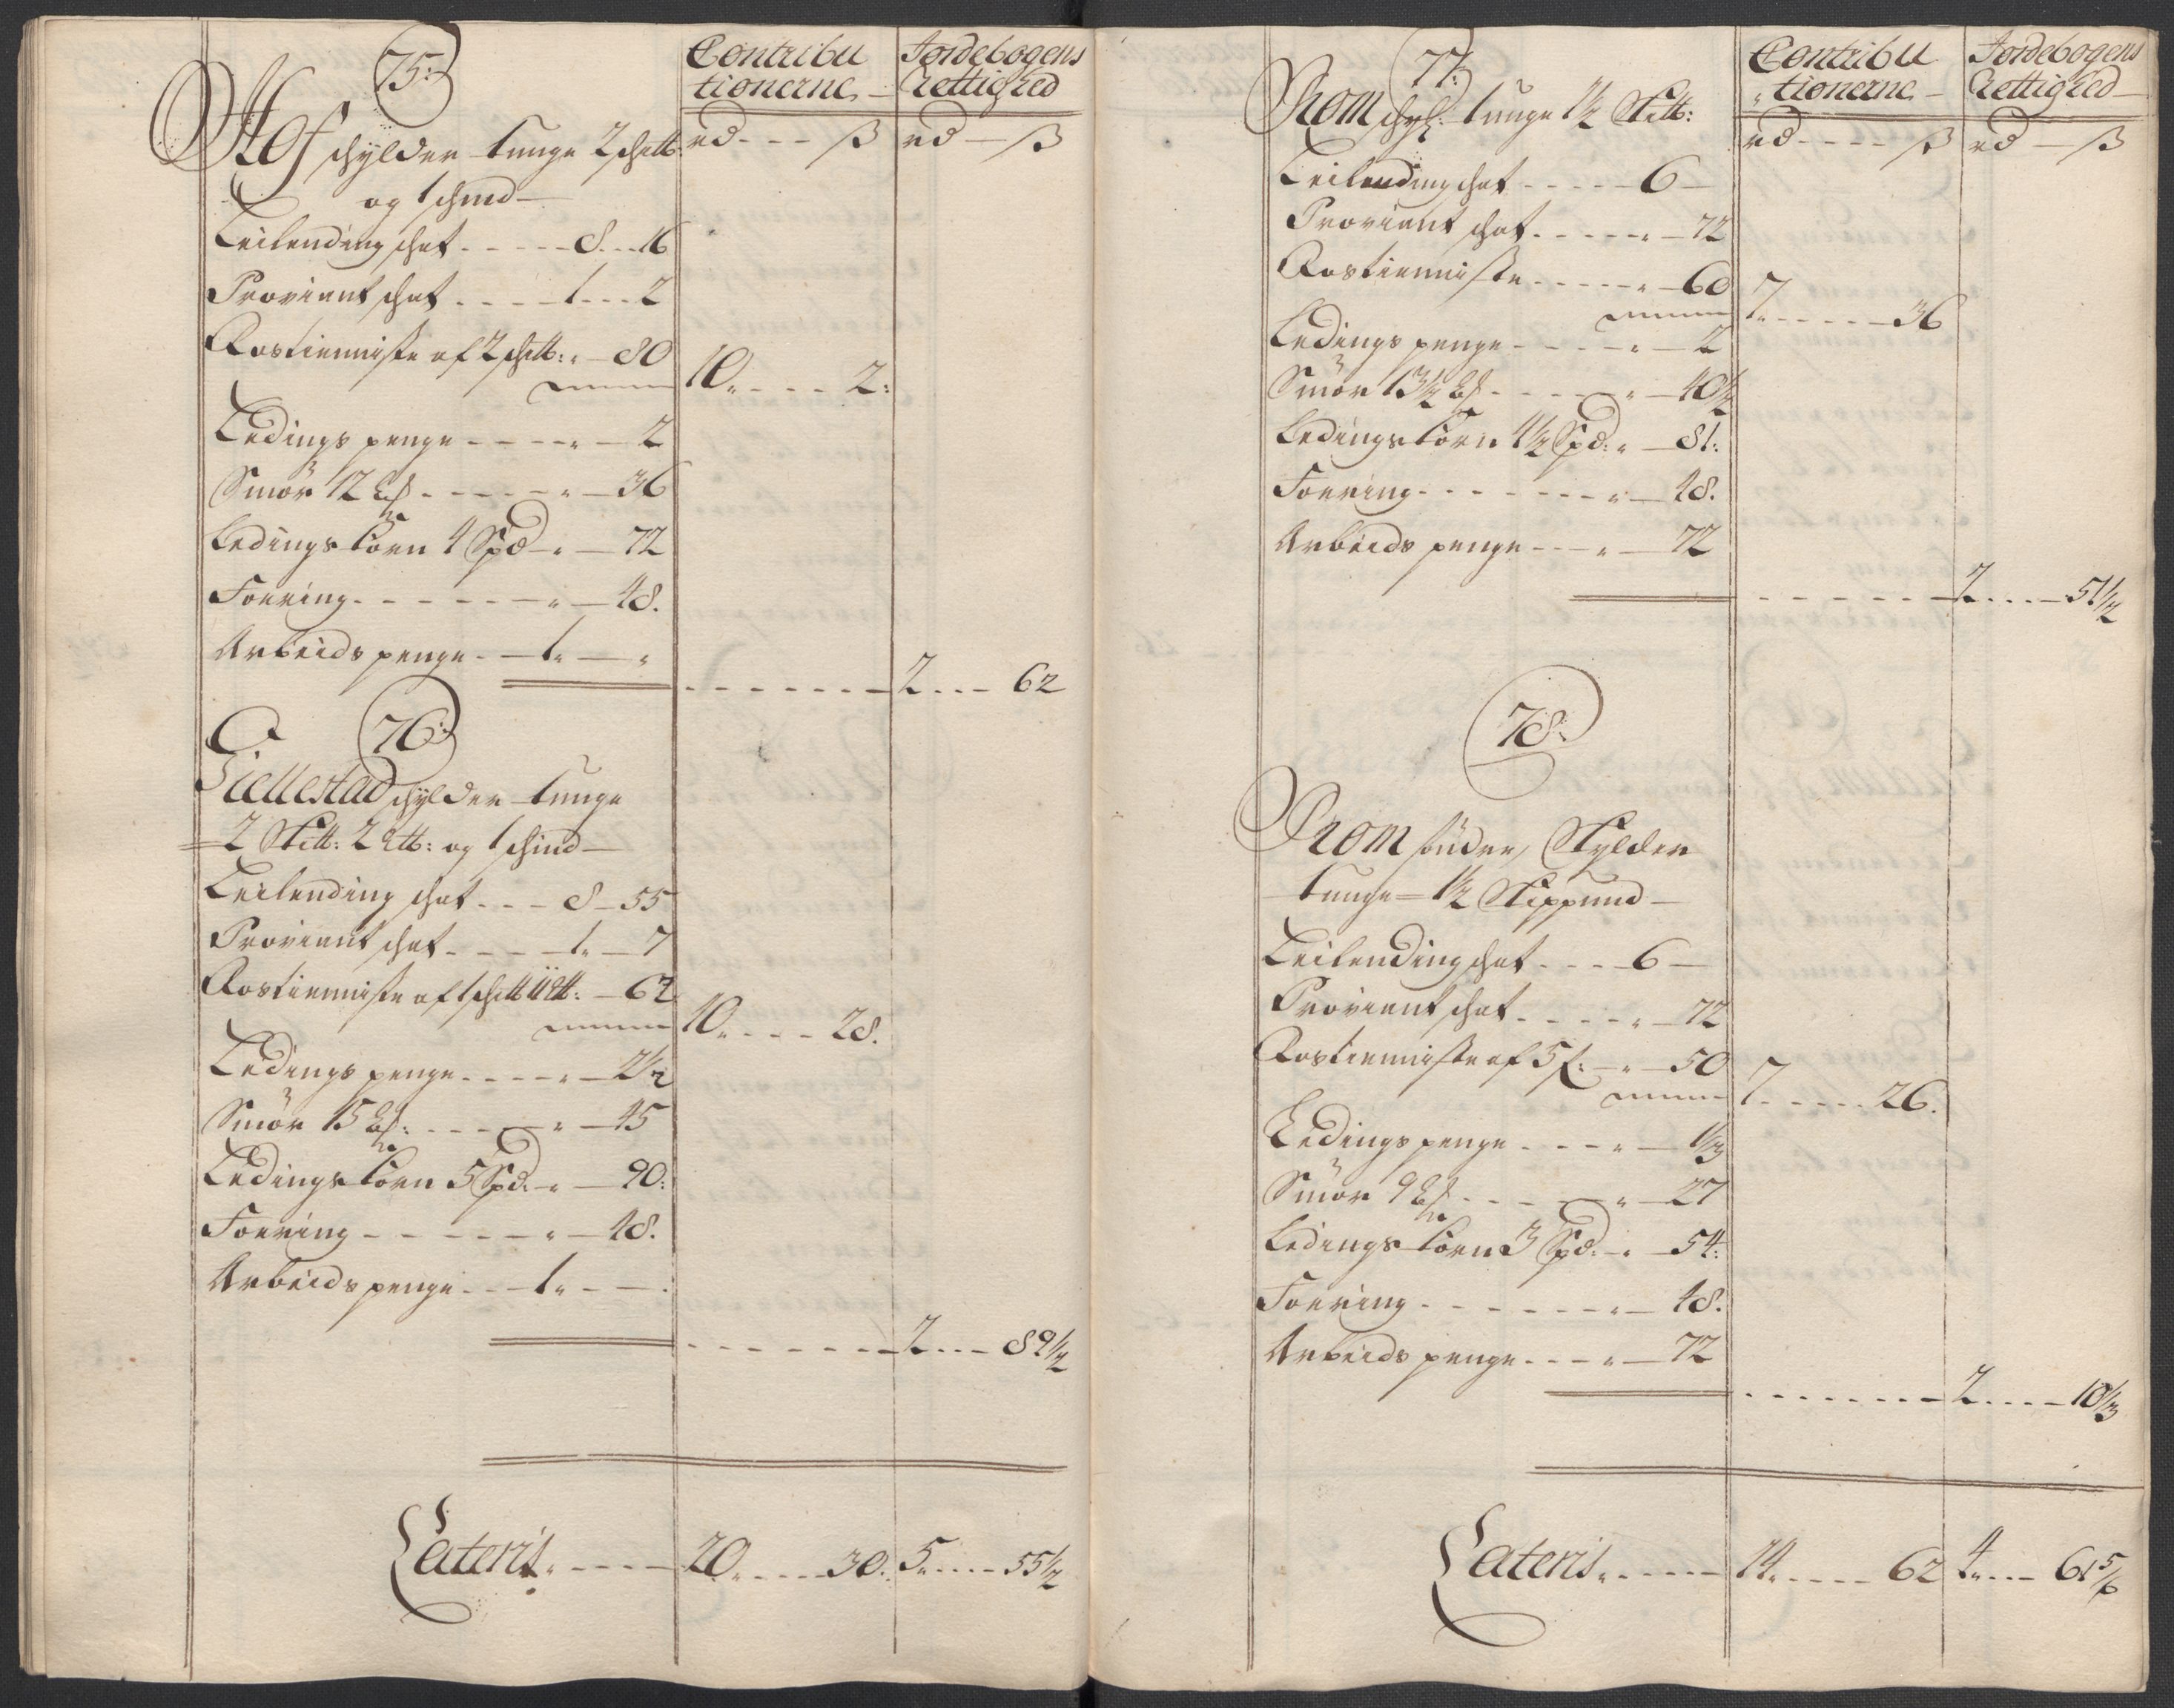 75:
Contribu
tionerne
Jordebogens
Rettighed
Hof schylder tunge 2 schltt
og 1 schind
rd --- ß rd - ß
Leilending schat ----- 8 -- 16
Proviant schat ---- 1 --- 2
Rostienniste af 2 schltt: " - 80
10 ---- 2:
Ledings penge ---- " - 2
Smör 12 ------ " - 36
Ledings Korn 4 Spd - " - 72
Foering ------ " - 48.
Arbeids penge - 1 " - "
2 --- 62
76:
Giellestad schylder tunge
2 Skltt: 2 ltt: og 1 schind
Leilending schat --- 8 - 55
Proviant schat ---- 1 " - 7
Rostienniste af 1 schltt 11 ltt: - 62
10 ---- 28.
Ledings penge ---- " - 2½
Smör 15 ----- " - 45
Ledings Korn 5 Spd. - " - 90:
Foering ------ " - 48.
Arbeids penge -- 1 " --
2 --- 89½
Lateris ---- 20 ---- 30. 5 ---- 55½
77:
Contribu
tionerne
Jordebogens
Rettighed
From schyl: tunge 1½ Skltt:
rd ---- ß rd - ß
Leilending schat ----- 6 -
Proviant schat ----- " - 72
Rostienniste ----- " - 60
7 ----- 36
Ledings penge ---- " - 2
Smör 13½ ----- " - 40½
Ledings Korn 4½ Spd: " - 81:
Foering ------- " - 48.
Arbeids penge --- " - 72
2 ---- 51½
78:
From söndre, Skylder
tunge 1½ Skippund
Leilending schat ---- 6 -
Proviant schat ---- " - 72
Rostienniste af 5 f: - " - 50
7 ----- 26.
Ledings penge ---- " - 1⅓
Smör 9 ----- " - 27
Ledings Korn 3 Spd: - " - 54:
Foering ------- " - 48.
Arbeids penge ---- " - 72
2 ---- 10⅓
Lateris ----- 14 ---- 62 4 --- 61⅚